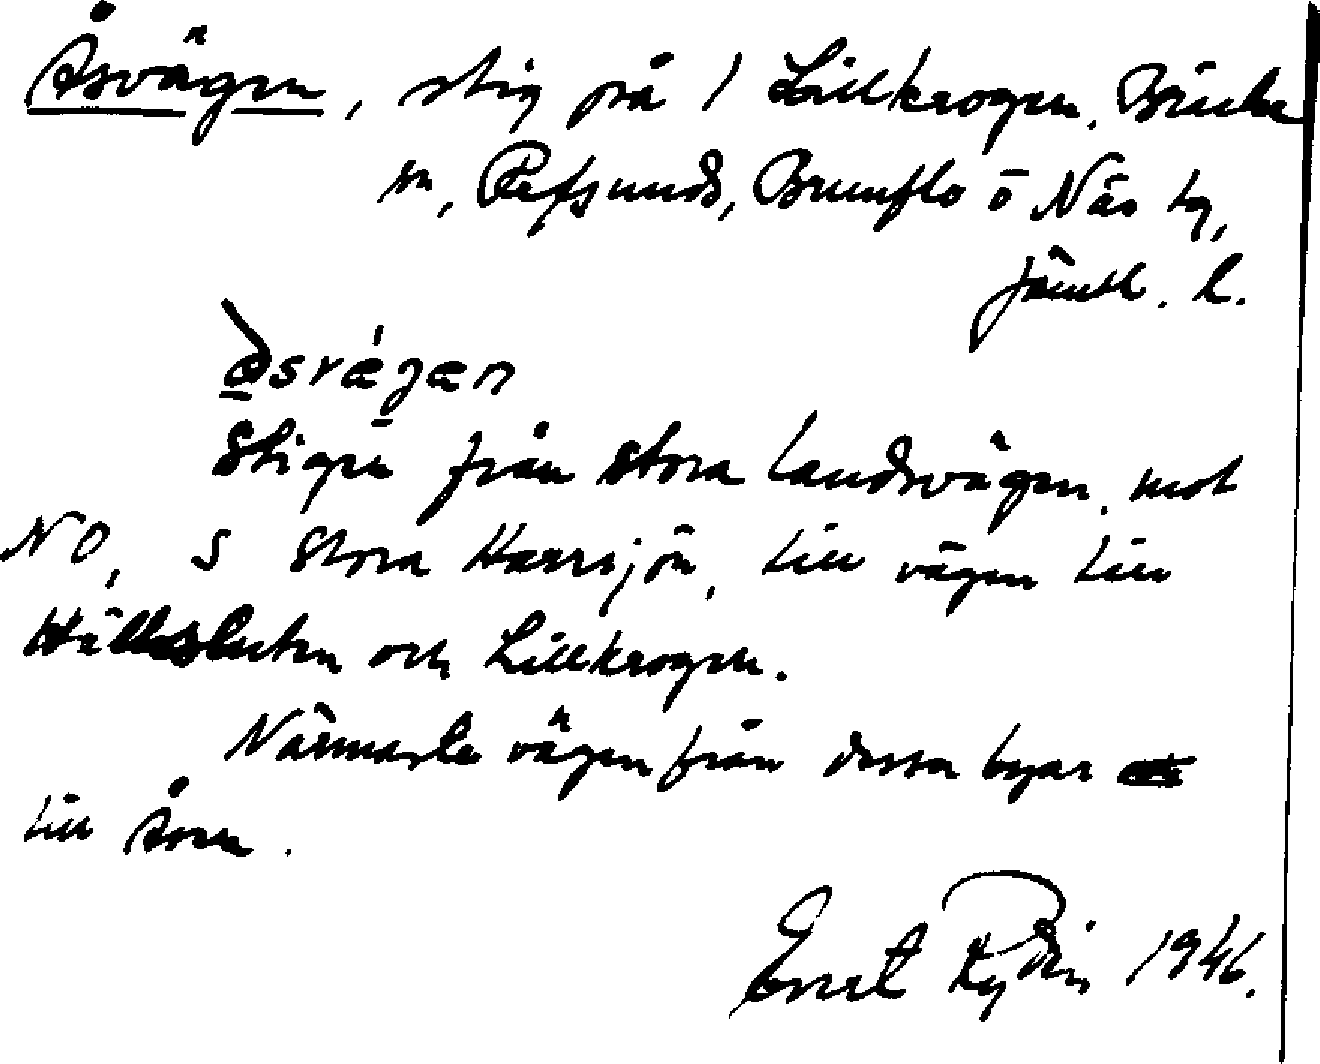 Åsvägen, stig på 1 Lillkrogen, Bräcke
sn, Refsunds, Brunflo o Näs tg,
Jämtl. l.
åsvǽgæn
Stigen från stora landsvägen, mot
NO, S Stora Harrsjön, till vägen till
Hällesluten och Lillkrogen.
Närmaste vägen från dessa byar
till Åsen.
Ernst Rydin 1946.